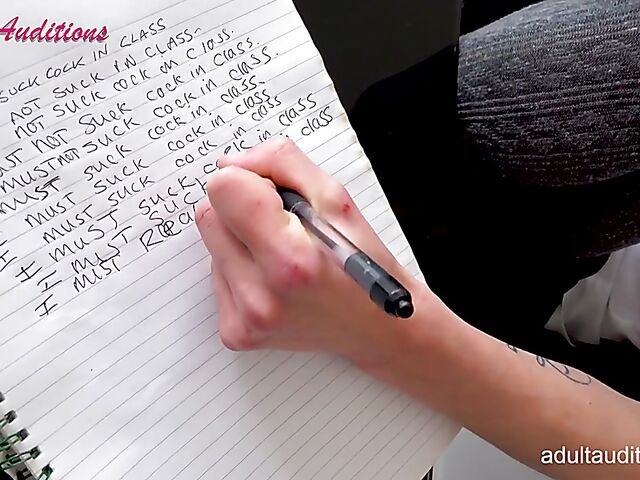 Auditions
SUCK COCK IN CLASS
NOT SUCK IN CLASS.
NOT SUCK COCK in Class.
MUST NOT SUCK COCK in Class.
MUST NOT SUCK COCK in class.
MUST SUCK COCK in class.
I MUST SUCK COCK in class
I MUST SUCK cock in class
I MUST SUCK cock in class
I MUST SUCK class
I MUST
adultaudit